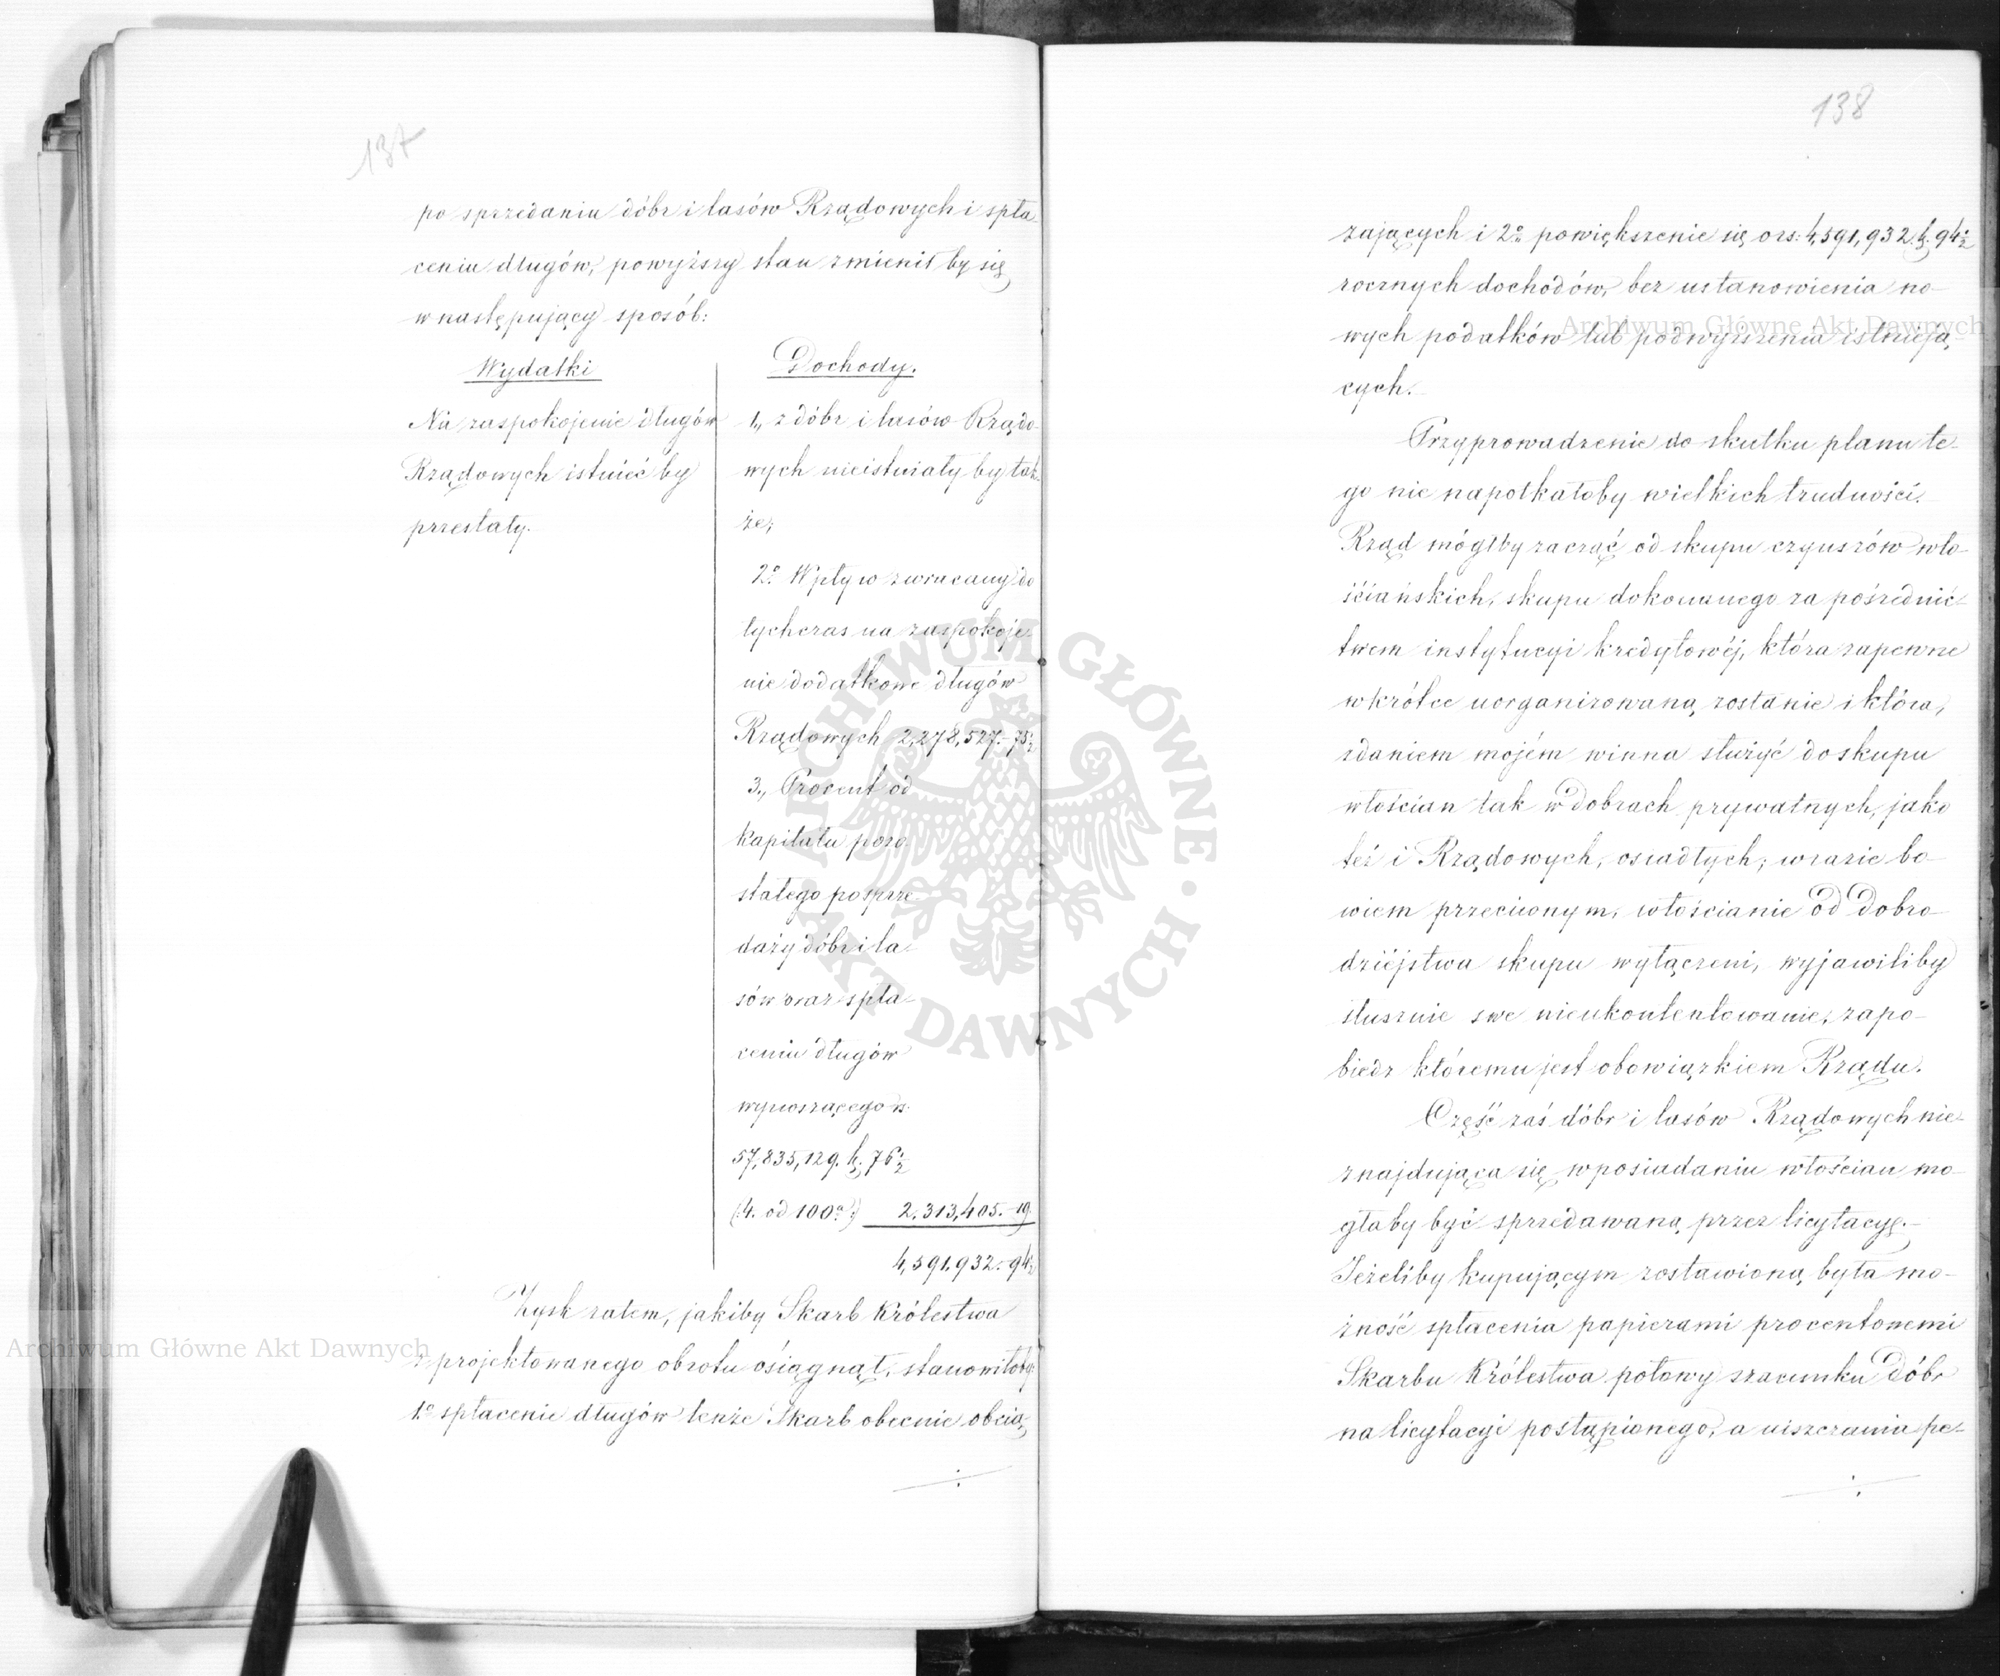 137
po sprzedaniu dóbr i lasów Rządowych i spła
ceniu długów, powyższy stan zmienił by się
w następujący sposób:
Wydatki
Na zaspokojenie długów
Rządowych istnieć by
przestały.
Dochody.
1., z dóbr i lasów Rządo-
wych nieistniały by tak-
że;
2o Wpływ zwracany do
tychczas na zaspokoje-
nie dodatkowe długów
Rządowych 2,278,527.-75½
3., Procent od
kapitału pozo-
stałego po sprze-
daży dóbr i la-
sów oraz spła-
ceniu długów
wynoszącego rs.
57,835,129. k. 76½
(:4. od 100o:) 2.313,405.-19
4,591,932.-94½
Zysk zatem, jakiby Skarb Królestwa
z projektowanego obrotu osiągnął, stanowiłoby:
1.o spłacenie długów tenże Skarb obecnie obcią-
138
żających i 2o powiększenie się o rs: 4,591,932. k. 94½
rocznych dochodów, bez ustanowienia no-
wych podatków lub podwyższenia istnieją-
cych.-
Przyprowadzenie do skutku planu te-
go nie napotkałoby wielkich trudności.
Rząd mógłby zacząć od skupu czynszów wło-
ściańskich, skupu dokonanego za pośrednic-
twem instytucyi kredytowéj, która zapewne
wkrótce uorganizowaną zostanie i która,
zdaniem mojém winna służyć do skupu
włościan tak w dobrach prywatnych, jako
też i Rządowych, osiadłych; w razie bo-
wiem przeciwnym, włościanie od dobro-
dziejstwa skupu wyłączeni, wyjawiliby
słusznie swe nieukontentowanie, zapo-
biedz któremu jest obowiązkiem Rządu.
Część zaś dóbr i lasów Rządowych nie-
znajdująca się w posiadaniu włościan mo-
głaby być sprzedawaną przez licytacyę.-
Jeżeliby kupującym zostawioną była mo-
żność spłacenia papierami procentowemi
Skarbu Królestwa połowy szacunku dóbr
na licytacyi postąpionego, a uiszczenia pe-
Archiwum Główne Akt Dawnych
Archiwum Główne Akt Dawnych
ARCHIWUM GŁÓWNE AKT DAWNYCH